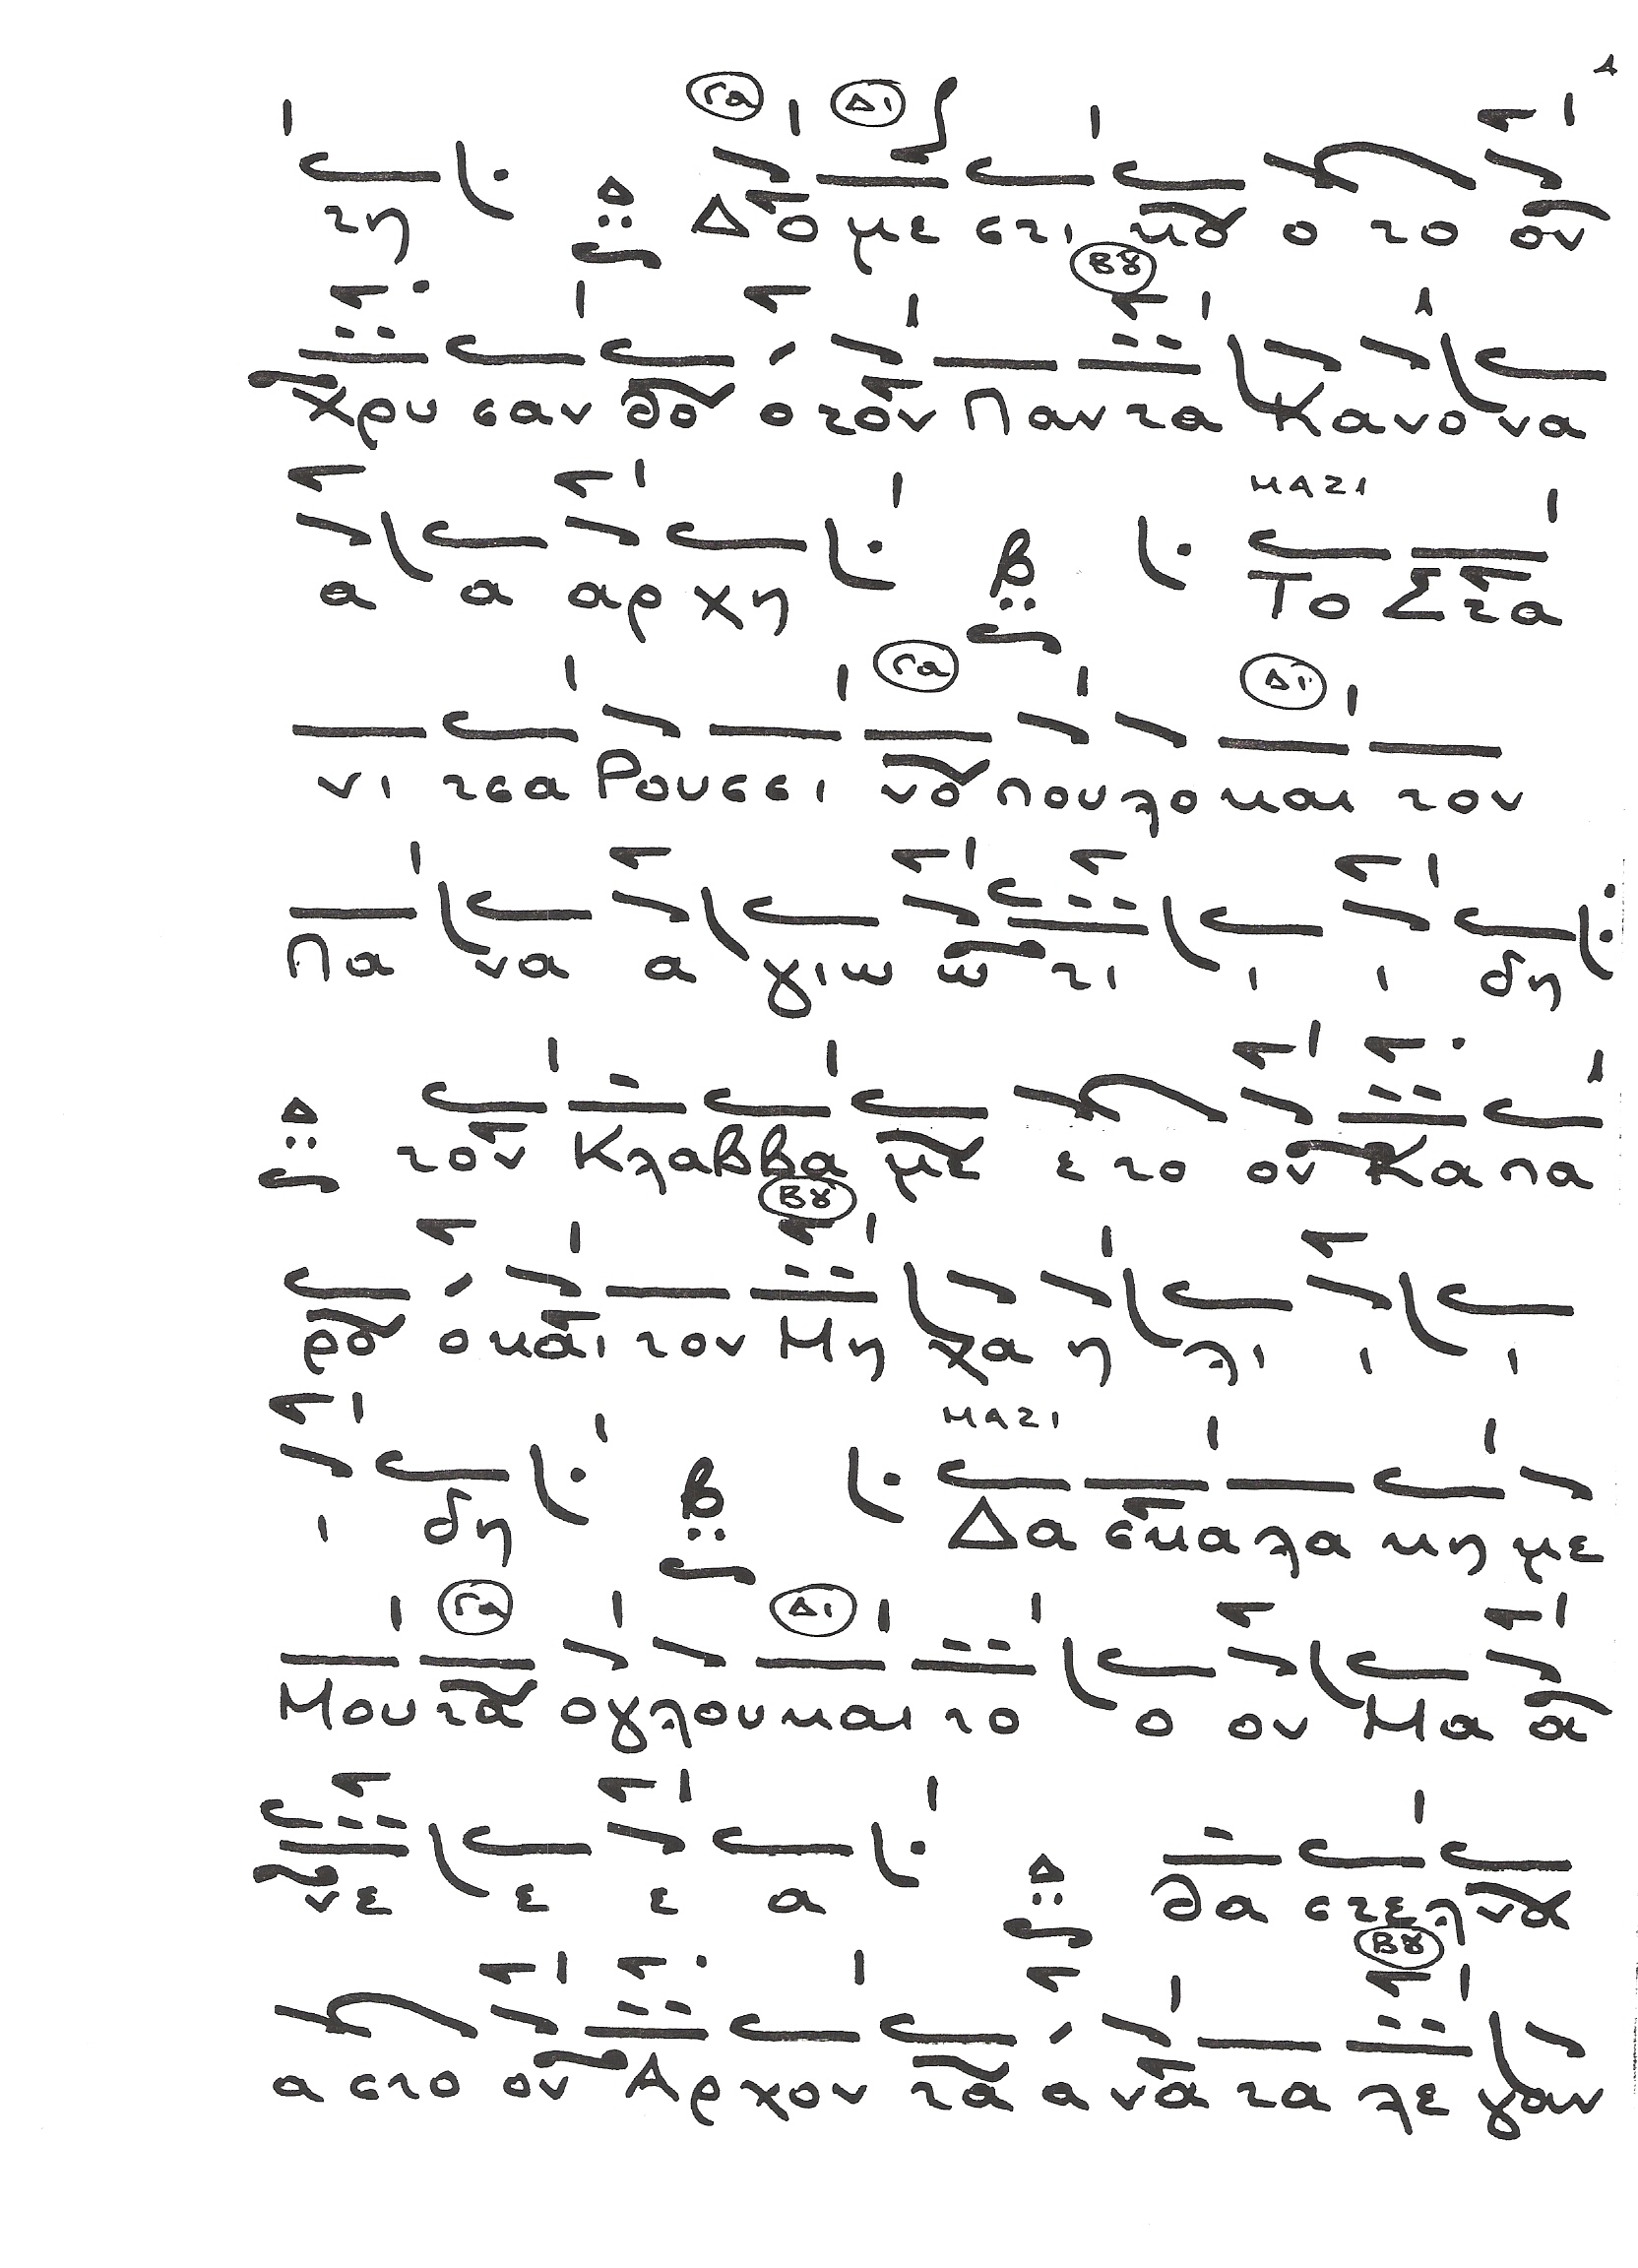 Γα Δι
τη Δ Δο με στι κο ο το ον
Βȣ
Χρυ σαν θο ο τον Παν τα Κα νο να
ΜΑΖΙ
α α αρ χη β Το Στα
Γα Δι
νι τσα Ρου σσι νο που λο και τον
Πα να α γιω ω τι ι ι δη
Δ τον Κλαβ βα με ε το ον Κα πα
Βȣ
ρο ο και τον Μη χα η λι ι ι
ΜΑΖΙ
ι δη β Δα σκα λα κη με
Γα Δι
Μου τα ο γλου και το ο ον Μα α
νε ε ε α Δ θα στελ να
Βȣ
α στο ον Αρ χον τα α να τα λε γαν